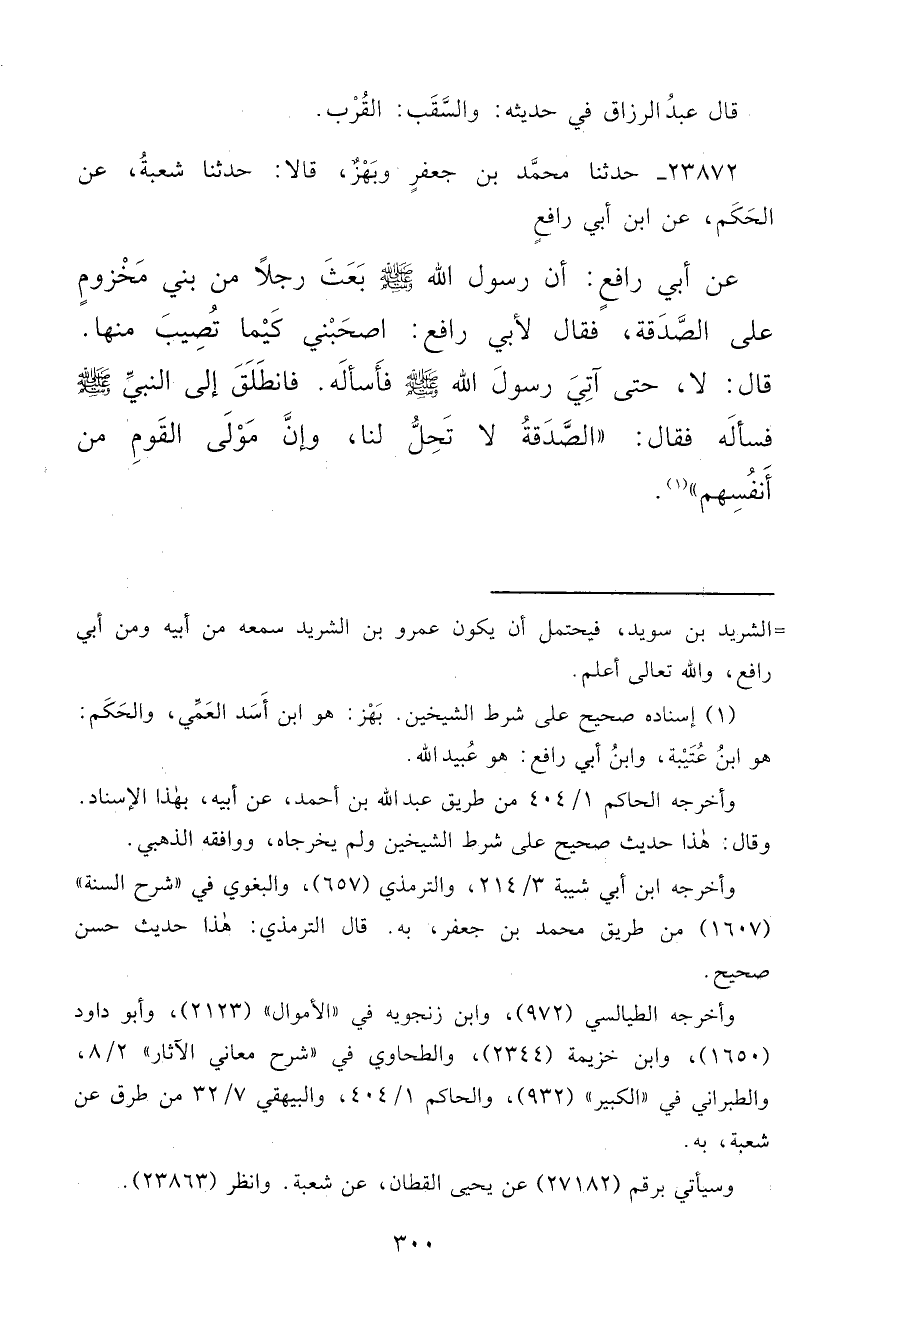 قال عبدُ الرزاق في حديثه: والسَّقَب: القُرْب.
٢٣٨٧٢ـ حدثنا محمَّد بن جعفرٍ وبَهْزٌ، قالا: حدثنا شعبةُ، عن
الحَكَم، عن ابن أبي رافعٍ
عن أبي رافعٍ: أن رسول الله ﷺ بَعَثَ رجلاً من بني مَخْزومٍ
على الصَّدَقة، فقال لأبي رافع: اصحَبْني كَيْما تُصِيبَ منها.
قال: لا، حتى آتِيَ رسولَ الله ﷺ فأَسألَه. فانطَلَقَ إلى النبيِّ ﷺ
فسألَه فقال: «الصَّدَقةُ لا تَحِلُّ لنا، وإنَّ مَوْلَى القَومِ من
أَنفُسِهم»(١).
=الشريد بن سويد، فيحتمل أن يكون عمرو بن الشريد سمعه من أبيه ومن أبي
رافع، والله تعالى أعلم.
(١) إسناده صحيح على شرط الشيخين. بَهْز: هو ابن أَسَد العَمِّي، والحَكَم:
هو ابنُ عُتَيْبة، وابنُ أبي رافع: هو عُبيد الله.
وأخرجه الحاكم ٤٠٤/١ من طريق عبد الله بن أحمد، عن أبيه، بهٰذا الإسناد.
وقال: هٰذا حديث صحيح على شرط الشيخين ولم يخرجاه، ووافقه الذهبي.
وأخرجه ابن أبي شيبة ٢١٤/٣، والترمذي (٦٥٧)، والبغوي في «شرح السنة»
(١٦٠٧) من طريق محمد بن جعفر، به. قال الترمذي: هٰذا حديث حسن
صحيح.
وأخرجه الطيالسي (٩٧٢)، وابن زنجويه في «الأموال» (٢١٢٣)، وأبو داود
(١٦٥٠)، وابن خزيمة (٢٣٤٤)، والطحاوي في «شرح معاني الآثار» ٨/٢،
والطبراني في «الكبير» (٩٣٢)، والحاكم ٤٠٤/١، والبيهقي ٣٢/٧ من طرق عن
شعبة، به.
وسيأتي برقم (٢٧١٨٢) عن يحيى القطان، عن شعبة. وانظر (٢٣٨٦٣).
٣٠٠